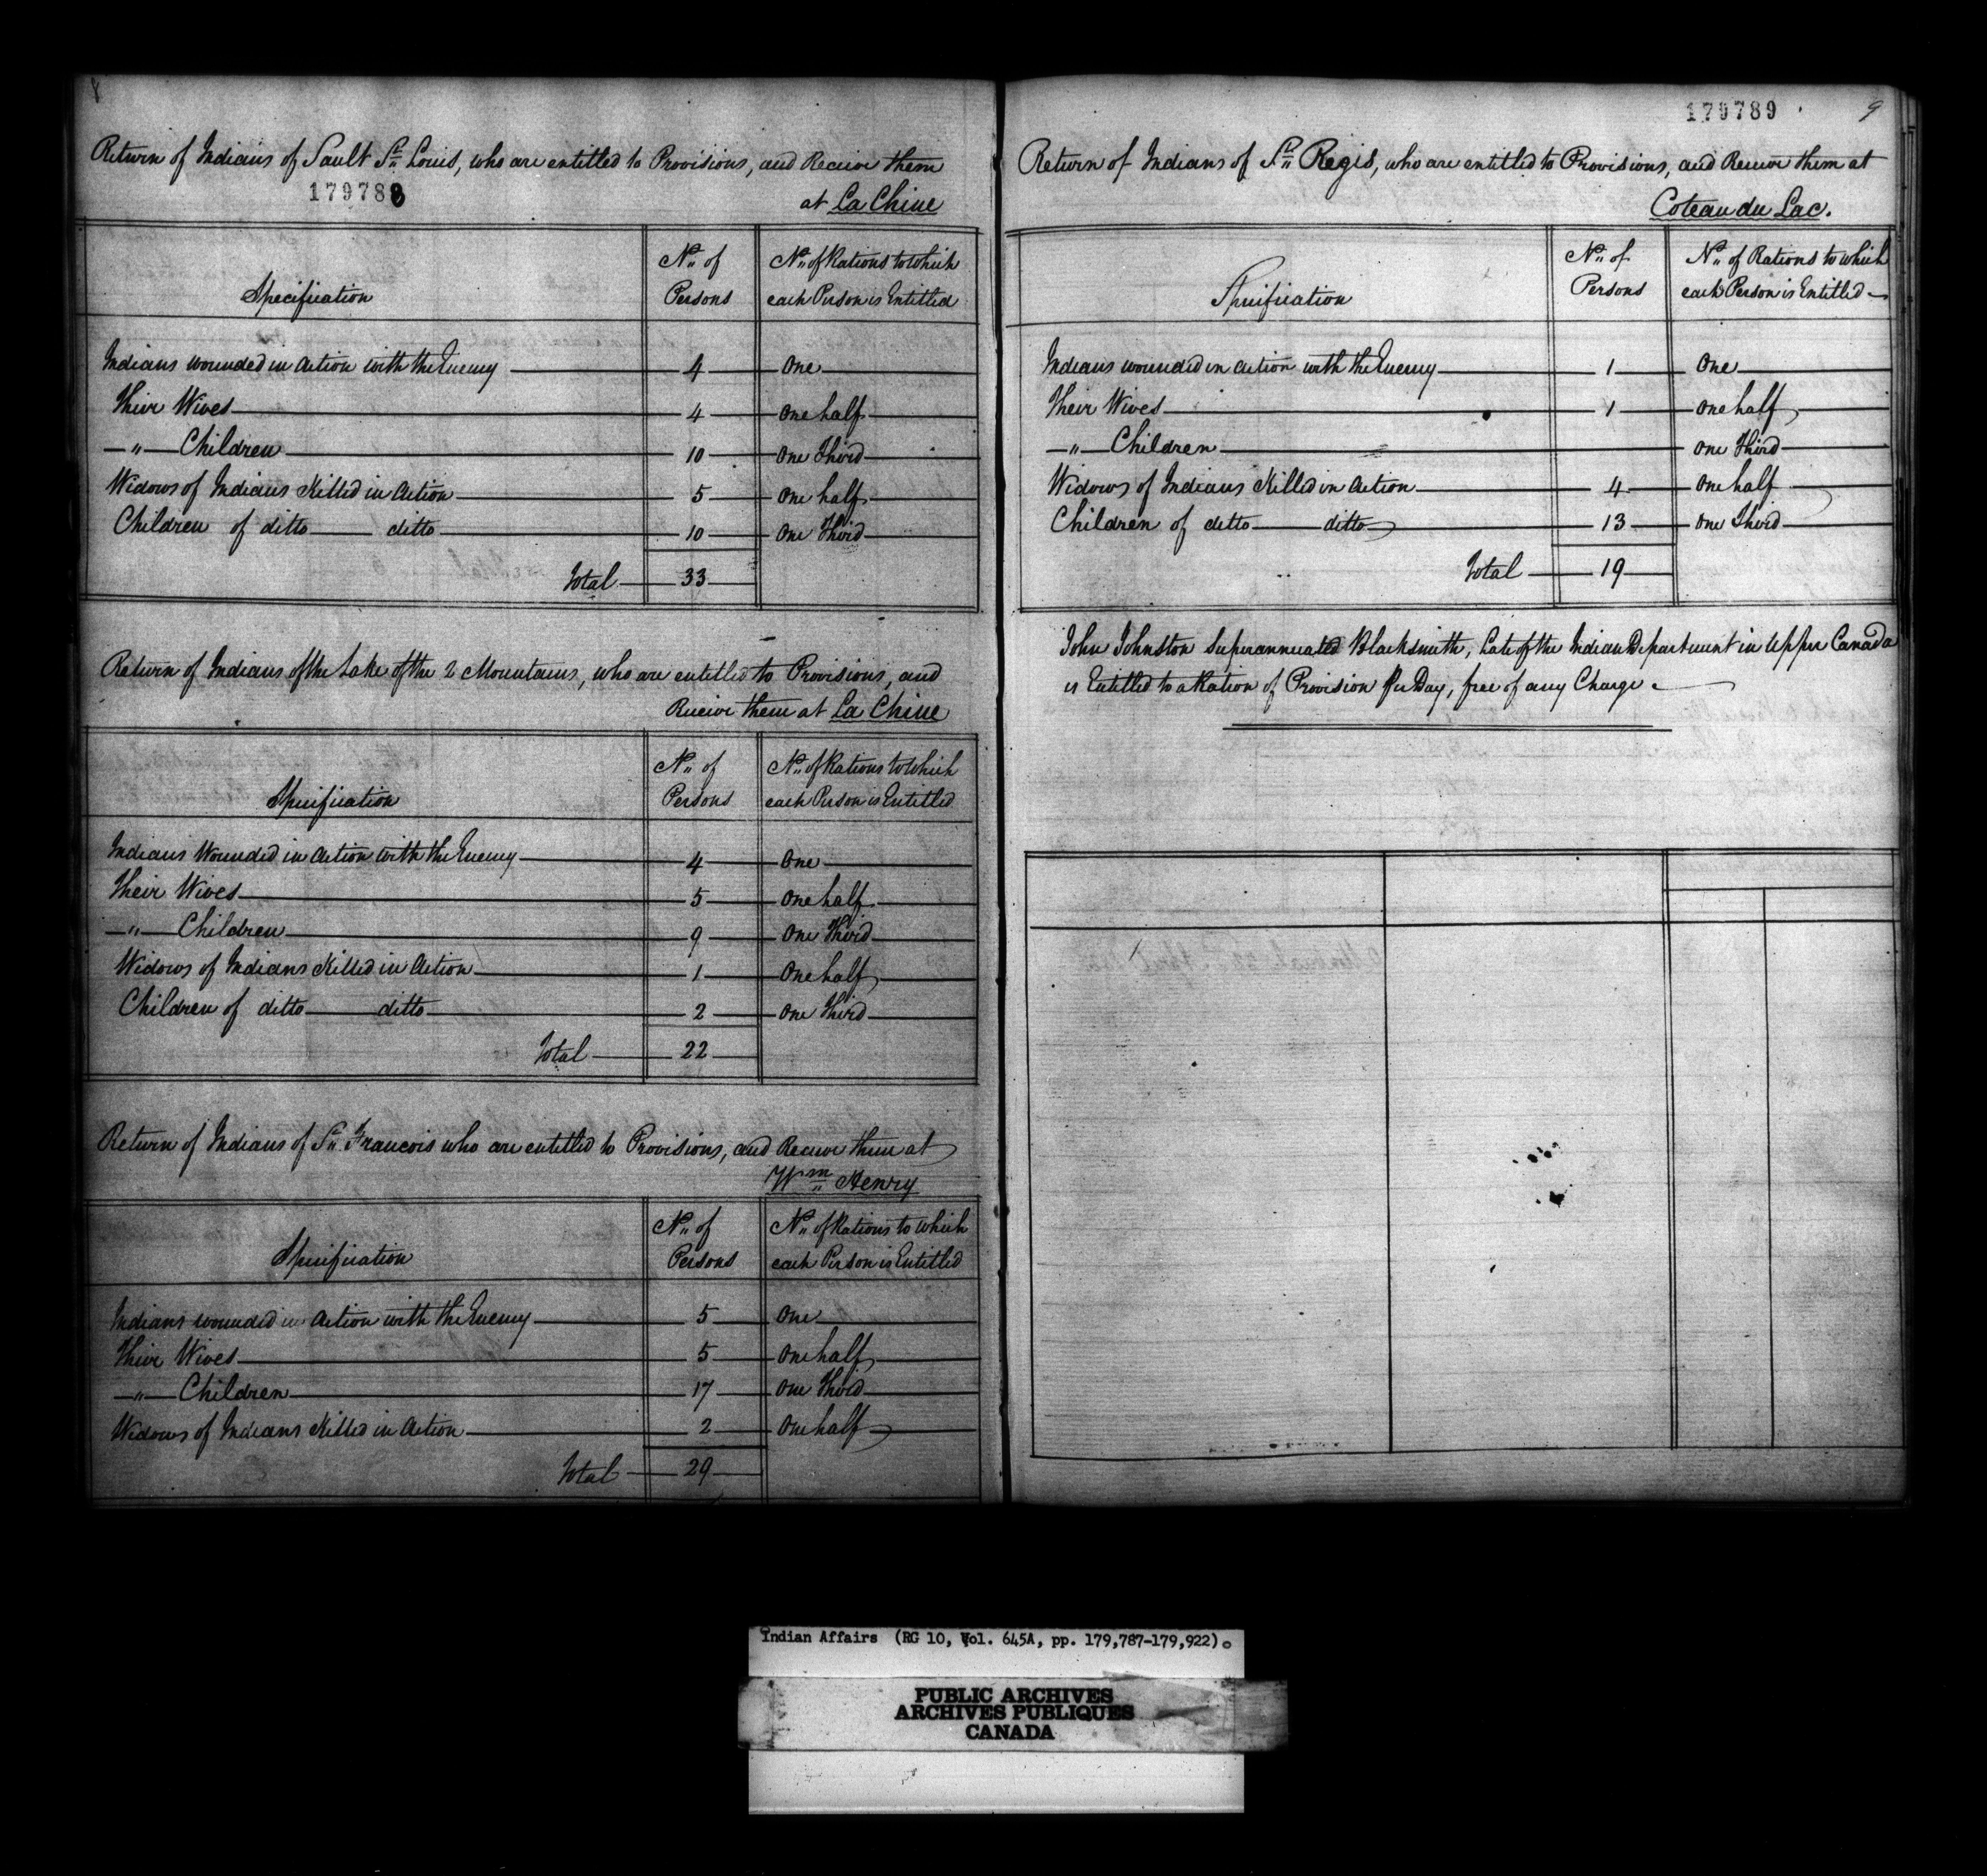 8
Return of Indians of Sault St. Louis, who are entitled to Provisions, and Receive them
179788
at La Chine
Specification
No. of Persons
No. of Rations to which each Person is Entitled
Indians wounded in Action with the Enemy 4 One
Their Wives 4 One half
" Children 10 One Third
Widows of Indians Killed in Action 5 One half
Children of ditto ditto 10 One Third
Total 33
Return of Indians of the Lake of the 2 Mountains, who are entitled to Provisions, and
Receive them at La Chine
Specification
No. of Persons
No. of Rations to which each Person is Entitled
Indians Wounded in Action with the Enemy 4 One
Their Wives 5 One half
" Children 9 One Third
Widows of Indians Killed in Action 1 One half
Children of ditto ditto 2 One Third
Total 22
Return of Indians of St. Francois who are entitled to Provisions, and Receive them at
Wm Henry
Specification
No. of Persons
No. of Rations to which each Person is Entitled
Indians wounded in Action with the Enemy 5 One
Their Wives 5 One half
" Children 17 One Third
Widows of Indians Killed in Action 2 One half
Total 29
179789
9
Return of Indians of St. Regis, who are entitled to Provisions, and Receive them at
Coteau du Lac.
Specification
No. of Persons
No. of Rations to which each Person is Entitled
Indians wounded in Action with the Enemy 1 One
Their Wives 1 One half
" Children one Third
Widows of Indians Killed in Action 4 One half
Children of ditto ditto 13 One Third
Total 19
John Johnston Superannuated Blacksmith, Late of the Indian Department in Upper Canada
is Entitled to a Ration of Provision Per Day, free of any Charge.
Indian Affairs (RG 10, Vol. 645A, pp. 179,787-179,922).
PUBLIC ARCHIVES
ARCHIVES PUBLIQUES
CANADA